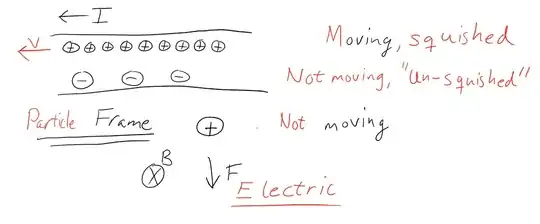 ← I
v ⊕ ⊕ ⊕ ⊕ ⊕ ⊕ ⊕ ⊕ Moving, squished
⊖ ⊖ ⊖ Not moving, "Un-squished"
Particle Frame ⊕ Not moving
⊗ B ↓ F
Electric